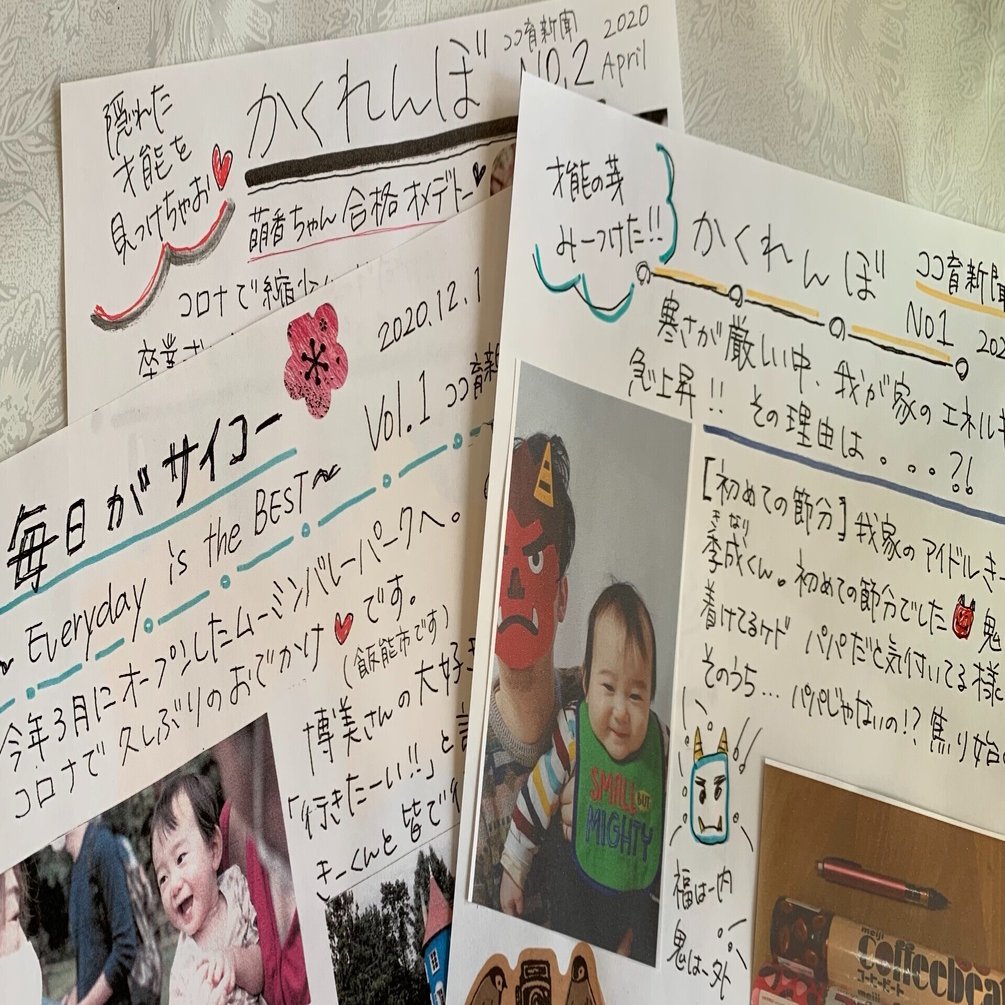 隠れた
才能を
見つけちゃお
かくれんぼ
ココ育新聞
NO.2
2020
April
萌香ちゃん合格オメデトー
コロナで縮小
卒業式
才能の芽
みーつけた!!
かくれんぼ
ココ育新聞
NO1
202
寒さが厳しい中、我が家のエネルギ
急上昇!! その理由は。。。?!
[初めての節分]我家のアイドルきー
きなり
季成くん。初めての節分でした 鬼
着けてるケド パパだと気付いてる様
そのうち... パパじゃないの!? 焦り始め
SMALL BUT
MIGHTY
福はー内
鬼はー外
meiji
Coffeebea
コーヒービート
毎日がサイコー
2020.12.1
Vol.1 ココ育新
~ Everyday is the BEST ~
今年3月にオープンしたムーミンバレーパークへ。
コロナで久しぶりのおでかけです。
(飯能市です)
博美さんの大好き
「行きたーい!!」と言
きーくんと皆で行